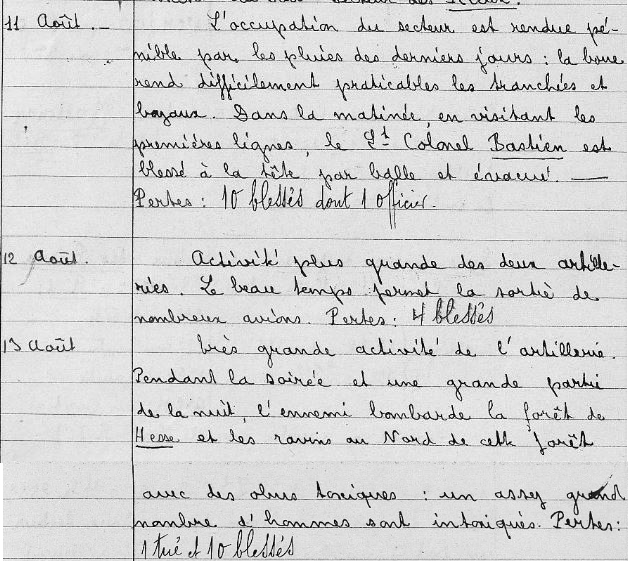 11 Août._ L'occupation du secteur est rendue pé-
nible par les pluies des derniers jours : la boue
rend difficilement praticables les tranchées et
boyaux. Dans la matinée, en visitant les
premières lignes, le Lt Colonel Bastien est
blessé à la tête par balle et évacué. —
Pertes : 10 blessés dont 1 officier.
12 Août. Activité plus grande des deux artille-
ries. Le beau temps permet la sortie de
nombreux avions. Pertes : 4 blessés
13 Août très grande activité de l'artillerie.
Pendant la soirée et une grande partie
de la nuit, l'ennemi bombarde la forêt de
Hesse et les ravins au Nord de cette forêt
avec des obus toxiques : un assez grand
nombre d'hommes sont intoxiqués. Pertes :
1 tué et 10 blessés